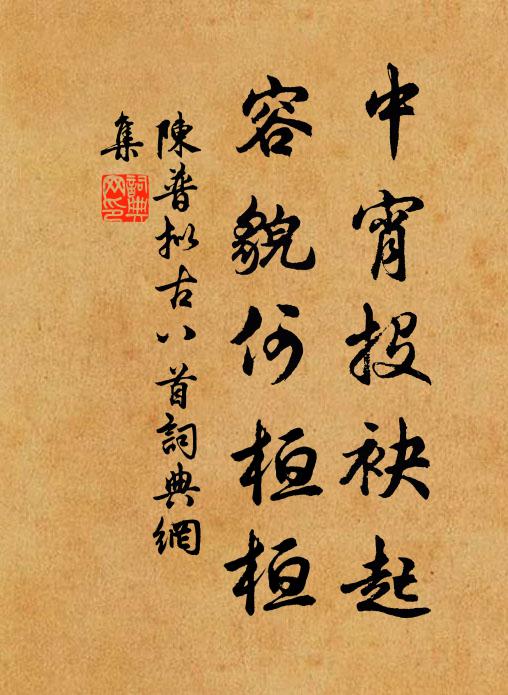 中宵投袂起
容貌何桓桓
陳普拟古八首詞典網
集
詞典网印